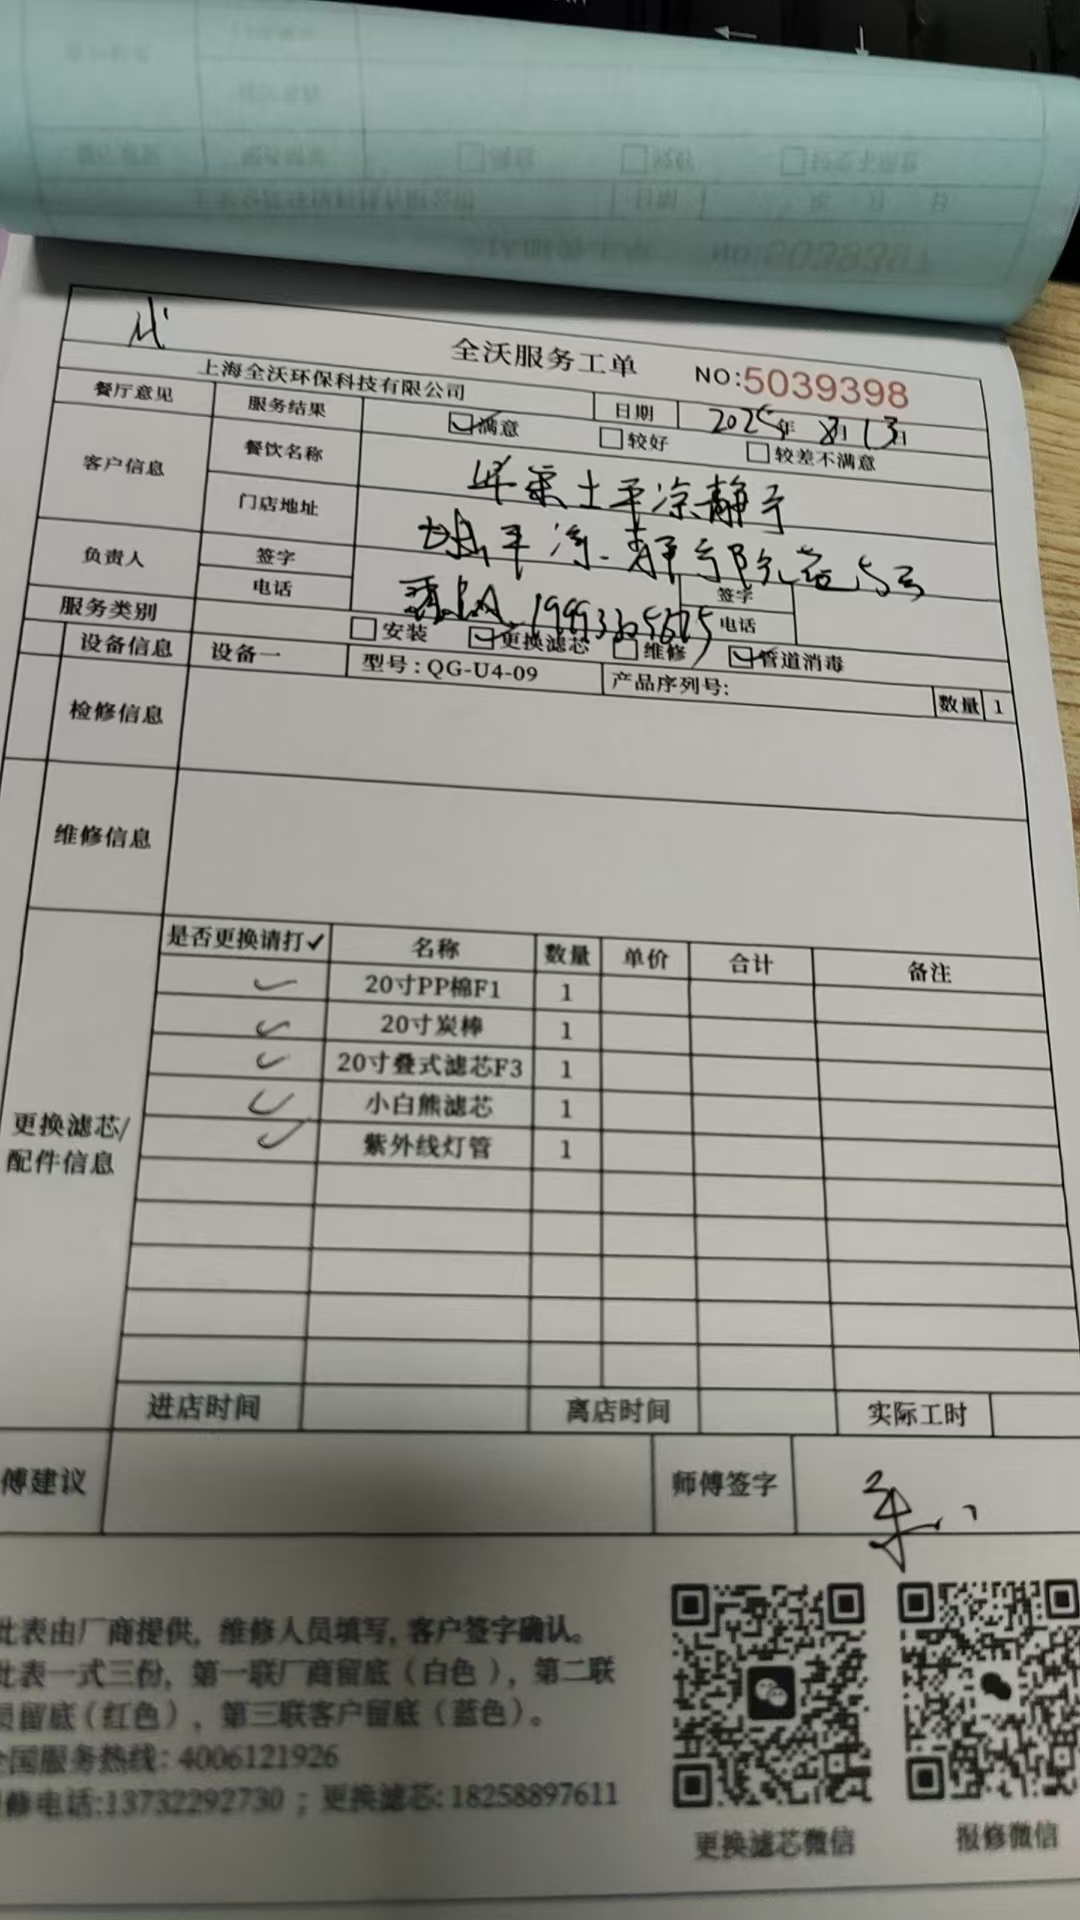 全沃服务工单 NO:5039398
上海全沃环保科技有限公司 日期 2025年8月13日
餐厅意见 服务结果 满意 较好 较差不满意
客户信息 餐饮名称 平凉静宁
门店地址 5号
负责人 签字 签字
电话 19993305375 电话
服务类别 安装 更换滤芯 维修 管道消毒
设备信息 设备一 型号:QG-U4-09 产品序列号: 数量 1
检修信息
维修信息
更换滤芯/
配件信息
是否更换请打✓ 名称 数量 单价 合计 备注
✓ 20寸PP棉F1 1
✓ 20寸炭棒 1
✓ 20寸叠式滤芯F3 1
✓ 小白熊滤芯 1
✓ 紫外线灯管 1
进店时间 离店时间 实际工时
傅建议 师傅签字
此表由厂商提供, 维修人员填写, 客户签字确认。
此表一式三份, 第一联厂商留底(白色), 第二联
员留底(红色), 第三联客户留底(蓝色)。
全国服务热线: 4006121926
修电话:13732292730 ; 更换滤芯:18258897611
更换滤芯微信 报修微信